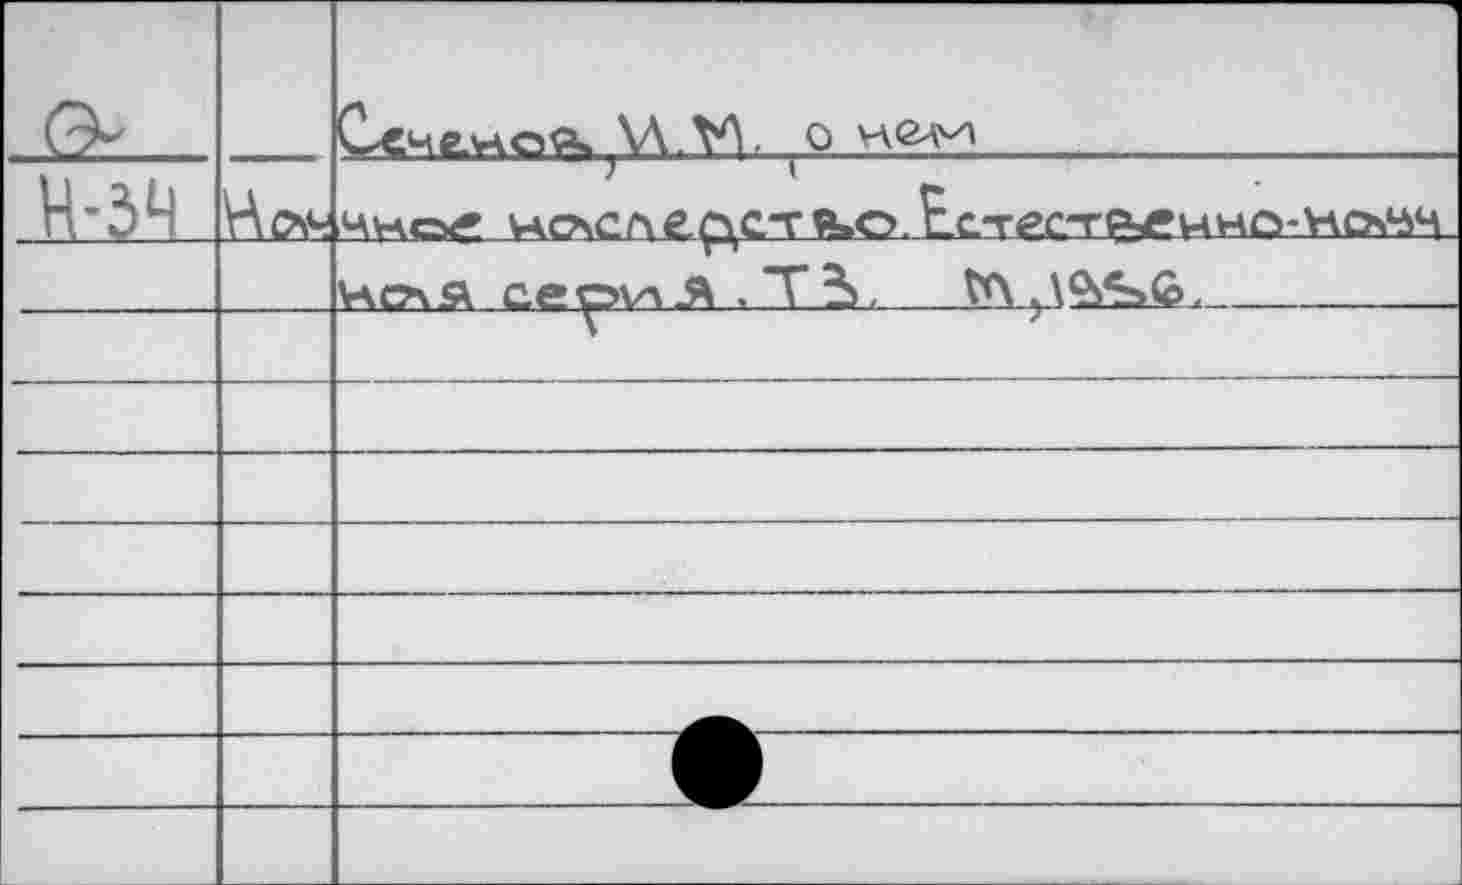 Сеченов, И.М. о нем
Н-34 Научное наследство. Естественно-науч
ная серия. Т 3. М, 1956.